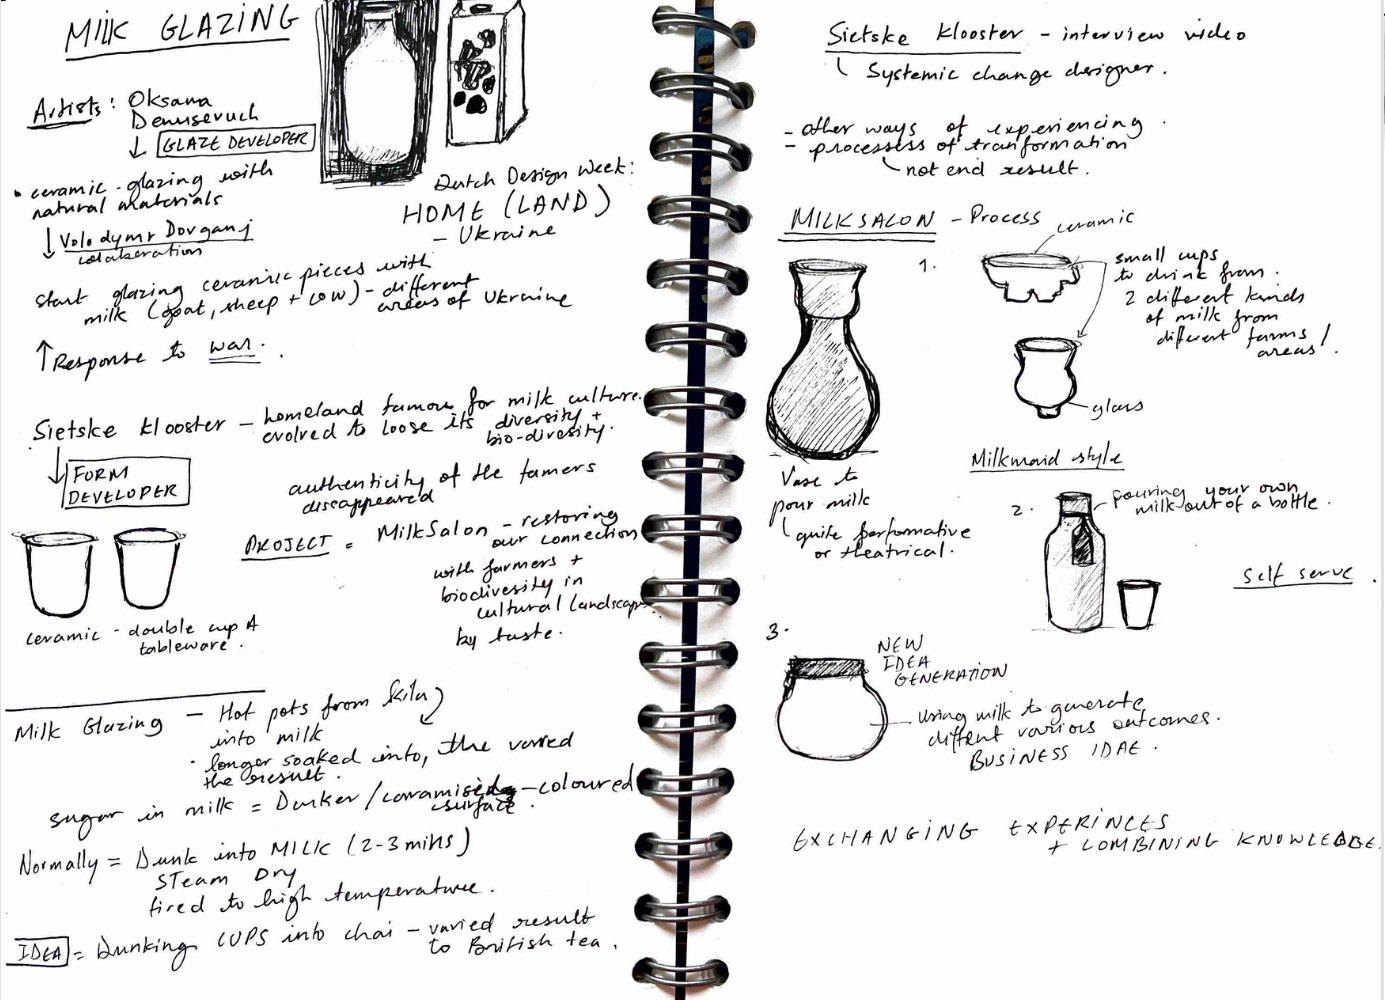 MILK GLAZING
Artists: Oksana
Denusevuch
↓ GLAZE DEVELOPER
• ceramic - glazing with
natural materials
↓ Volodymr Dovganj
colaberation
Dutch Design Week:
HOME (LAND)
- Ukraine
start glazing ceramic pieces with
milk (goat, sheep + cow) - different
areas of Ukraine
↑ Response to war.
Sietske Klooster - homeland famous for milk culture.
evolved to loose its diversity +
bio-divesity.
↓ FORM
DEVELOPER
authenticity of the famers
disappeared
PROJECT = MilkSalon - restoring
our connection
with farmers +
biodiversity in
cultural landscapes..
by taste.
ceramic - double cup
tableware.
Milk Glazing - Hot pots from kiln
into milk
• longer soaked into, the varied
the result.
sugar in milk = Darker / caramised - coloured
surface.
Normally = Dunk into MILK (2-3 mins)
STeam Dry
fired to high temperature.
IDEA = Dunking CUPS into chai - varied result
to British tea.
Sietske Klooster - interview video
Systemic change designer.
- other ways of experiencing
- processess of tranformation
not end result.
MILKSALON - Process
1.
ceramic
small cups
to drink from.
2 different kinds
of milk from
different farms /
areas!
glass
Vase to
pour milk
quite performative
or theatrical.
Milkmaid style
2.
pouring your own
milk out of a bottle.
Self serve.
3.
NEW
IDEA
GENERATION
using milk to generate
diffent various outcomes.
BUSINESS IDAE.
EXCHANGING EXPERINCES
+ COMBINING KNOWLEDGE.